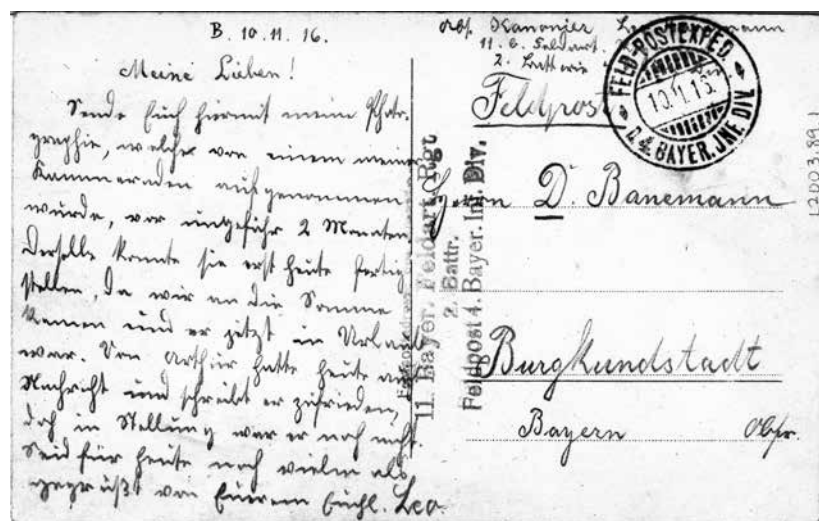 B. 10.11.16.
Meine Lieben!
Sende Euch hiermit meine Photo-
graphie, welche von einem meiner
Kammeraden aufgenommen
wurde, vor ungefähr 2 Monaten.
Derselbe konnte sie erst heute fertig
stellen, da wir an die Somme
kamen und er jetzt in Urlaub
war. Von Arthur hatte heute auch
Nachricht und schreibt er zufrieden,
doch in Stellung war er noch nicht.
Seid für heute noch vielm als
gegrüßt von Eurem Leo.
Abs. Kanonier
11. b. Feldart.
2. Batterie
Feldpost
FELD-POSTEXPED.
10.11.16.
D. 4. BAYER. JNF. DIV.
11. Bayer. Feldart. Rgt
2. Battr.
Feldpost 4. Bayer. Inf. Div.
Herrn D. Banemann
Burgkundstadt
Bayern Obfr.
12003.89.1